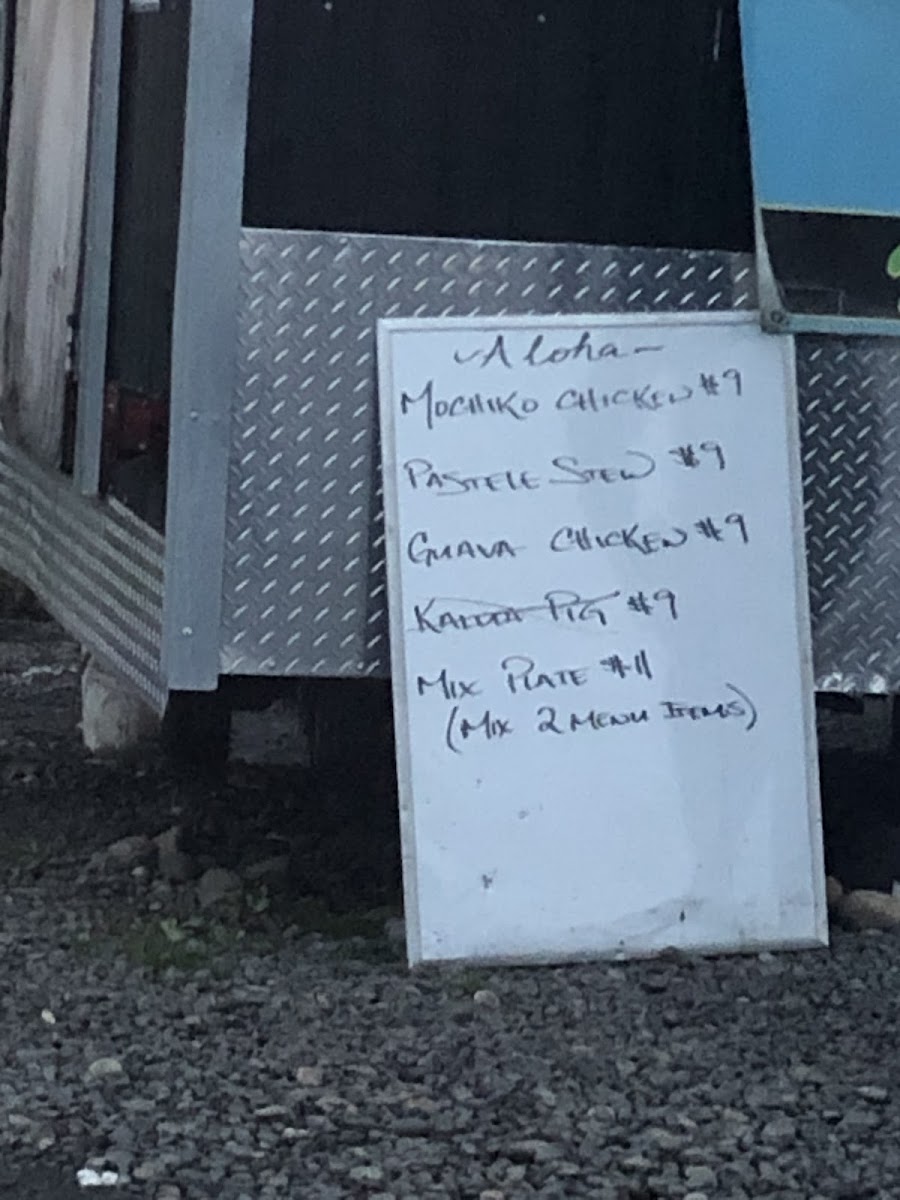 ~Aloha~
MOCHIKO CHICKEN $9
PASTELE STEW $9
GUAVA CHICKEN $9
KALUA PIG $9
MIX PLATE $11
(MIX 2 MENU ITEMS)